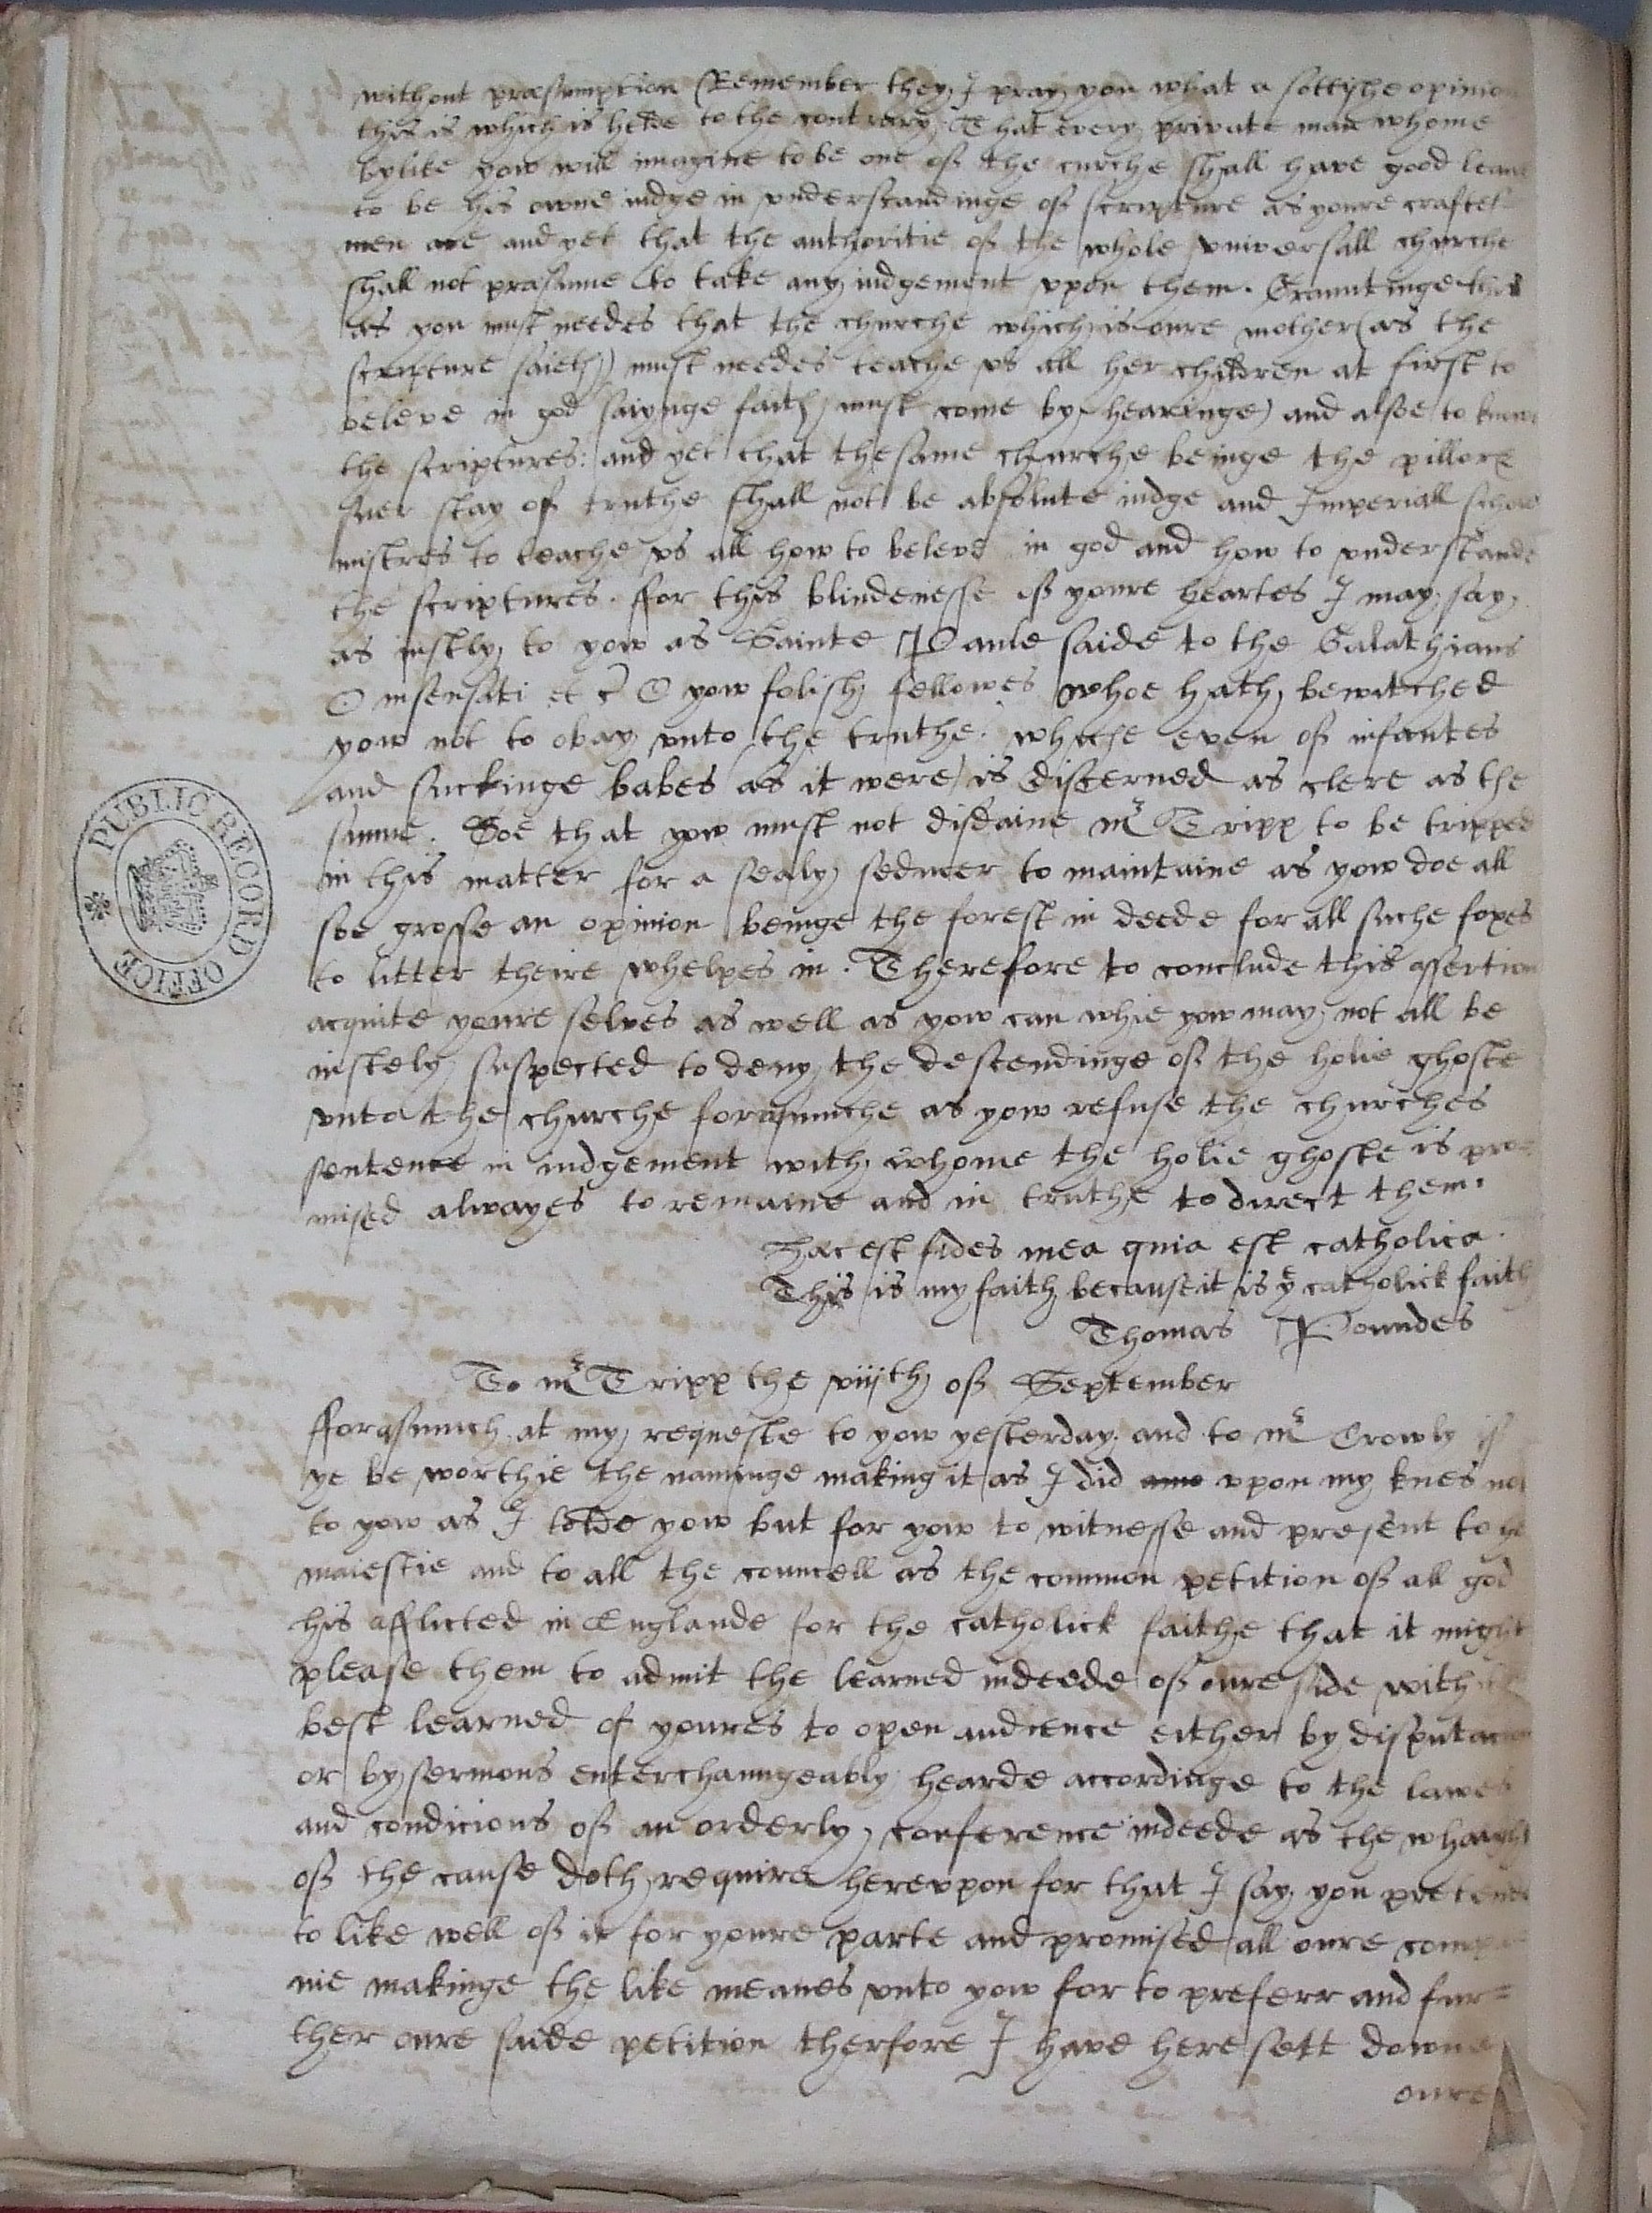 without præsumption (Remember they I pray you what a sottishe opinion
this is which is helde to the contrary. That every private man whome
bylike yow will imagine to be one of the curche shall have good leave
to be his owne iudge in vnderstandinge of scripture as youre craftes
men are and yet that the authoritie of the whole vniversall churche
shall not præsume to take any iudgement vpon them. Grauntinge this
as you must needes that the churche which is oure mother (as the
scripture saieth) must needes teache vs all her children at first to
beleve in god saiynge faith must come by hearinge) and alsoe to knowe
the scriptures: and yet that thesame churche beinge the pillore
suer stay of truthe shall not be absolute iudge and Imperiall schole
mistres to teache vs all how to beleve in god and how to vnderstande
the scriptures. ffor this blindenesse of youre heartes I may say
as iustly to yow as Sainte Paule saide to the Galathians
O insensati et c O yow folish fellowes whoe hath bewitched
yow not to obay vnto the truthe. whiche even of infantes
and suckinge babes as it were is discerned as clere as the
sunne. Soe that yow must not disdaine mr Tripp to be tripped
in this matter for a sealy seducer to maintaine as yow doe all
soe grosse an opinion beinge the forest in deede for all suche foxes
to litter theire whelpes in. Therefore to conclude this assertion
acquite youre selves as well as yow can whie yow may not all be
iustely suspected to deny the descendinge of the holie ghoste
vnto the churche forasmuche as yow refuse the churches
sentence in iudgement with whome the holie ghoste is pro=
mised alwayes to remaine and in truthe to direct them.
Hac est fides mea quia est catholica.
This is my faith because it is ye catholick faith
Thomas Poundes
To mr Tripp the viijth of September
fforasmuch at my requeste to yow yesterday and to mr Crowly if
ye be worthie the naminge making it as I did vpon my knes not
to yow as I tolde yow but for yow to witnesse and present to he
maiestie and to all the councell as the common petition of all god
his afflicted in Englande for the catholick faithe that it might
please them to admit the learned indeede of oure side with
best learned of youres to open audience either by disputacion
or by sermons enterchaungeably hearde accordinge to the lawes
and condicions of an orderly conference indeede as the whaight
of the cause doth require herevpon for that I say you pretende
to like well of it for youre parte and promised all oure compa
nie makinge the like meanes vnto yow for to preferr and fur=
ther oure saide petition therfore I have here sett downe
oure
PUBLIC RECORD OFFICE